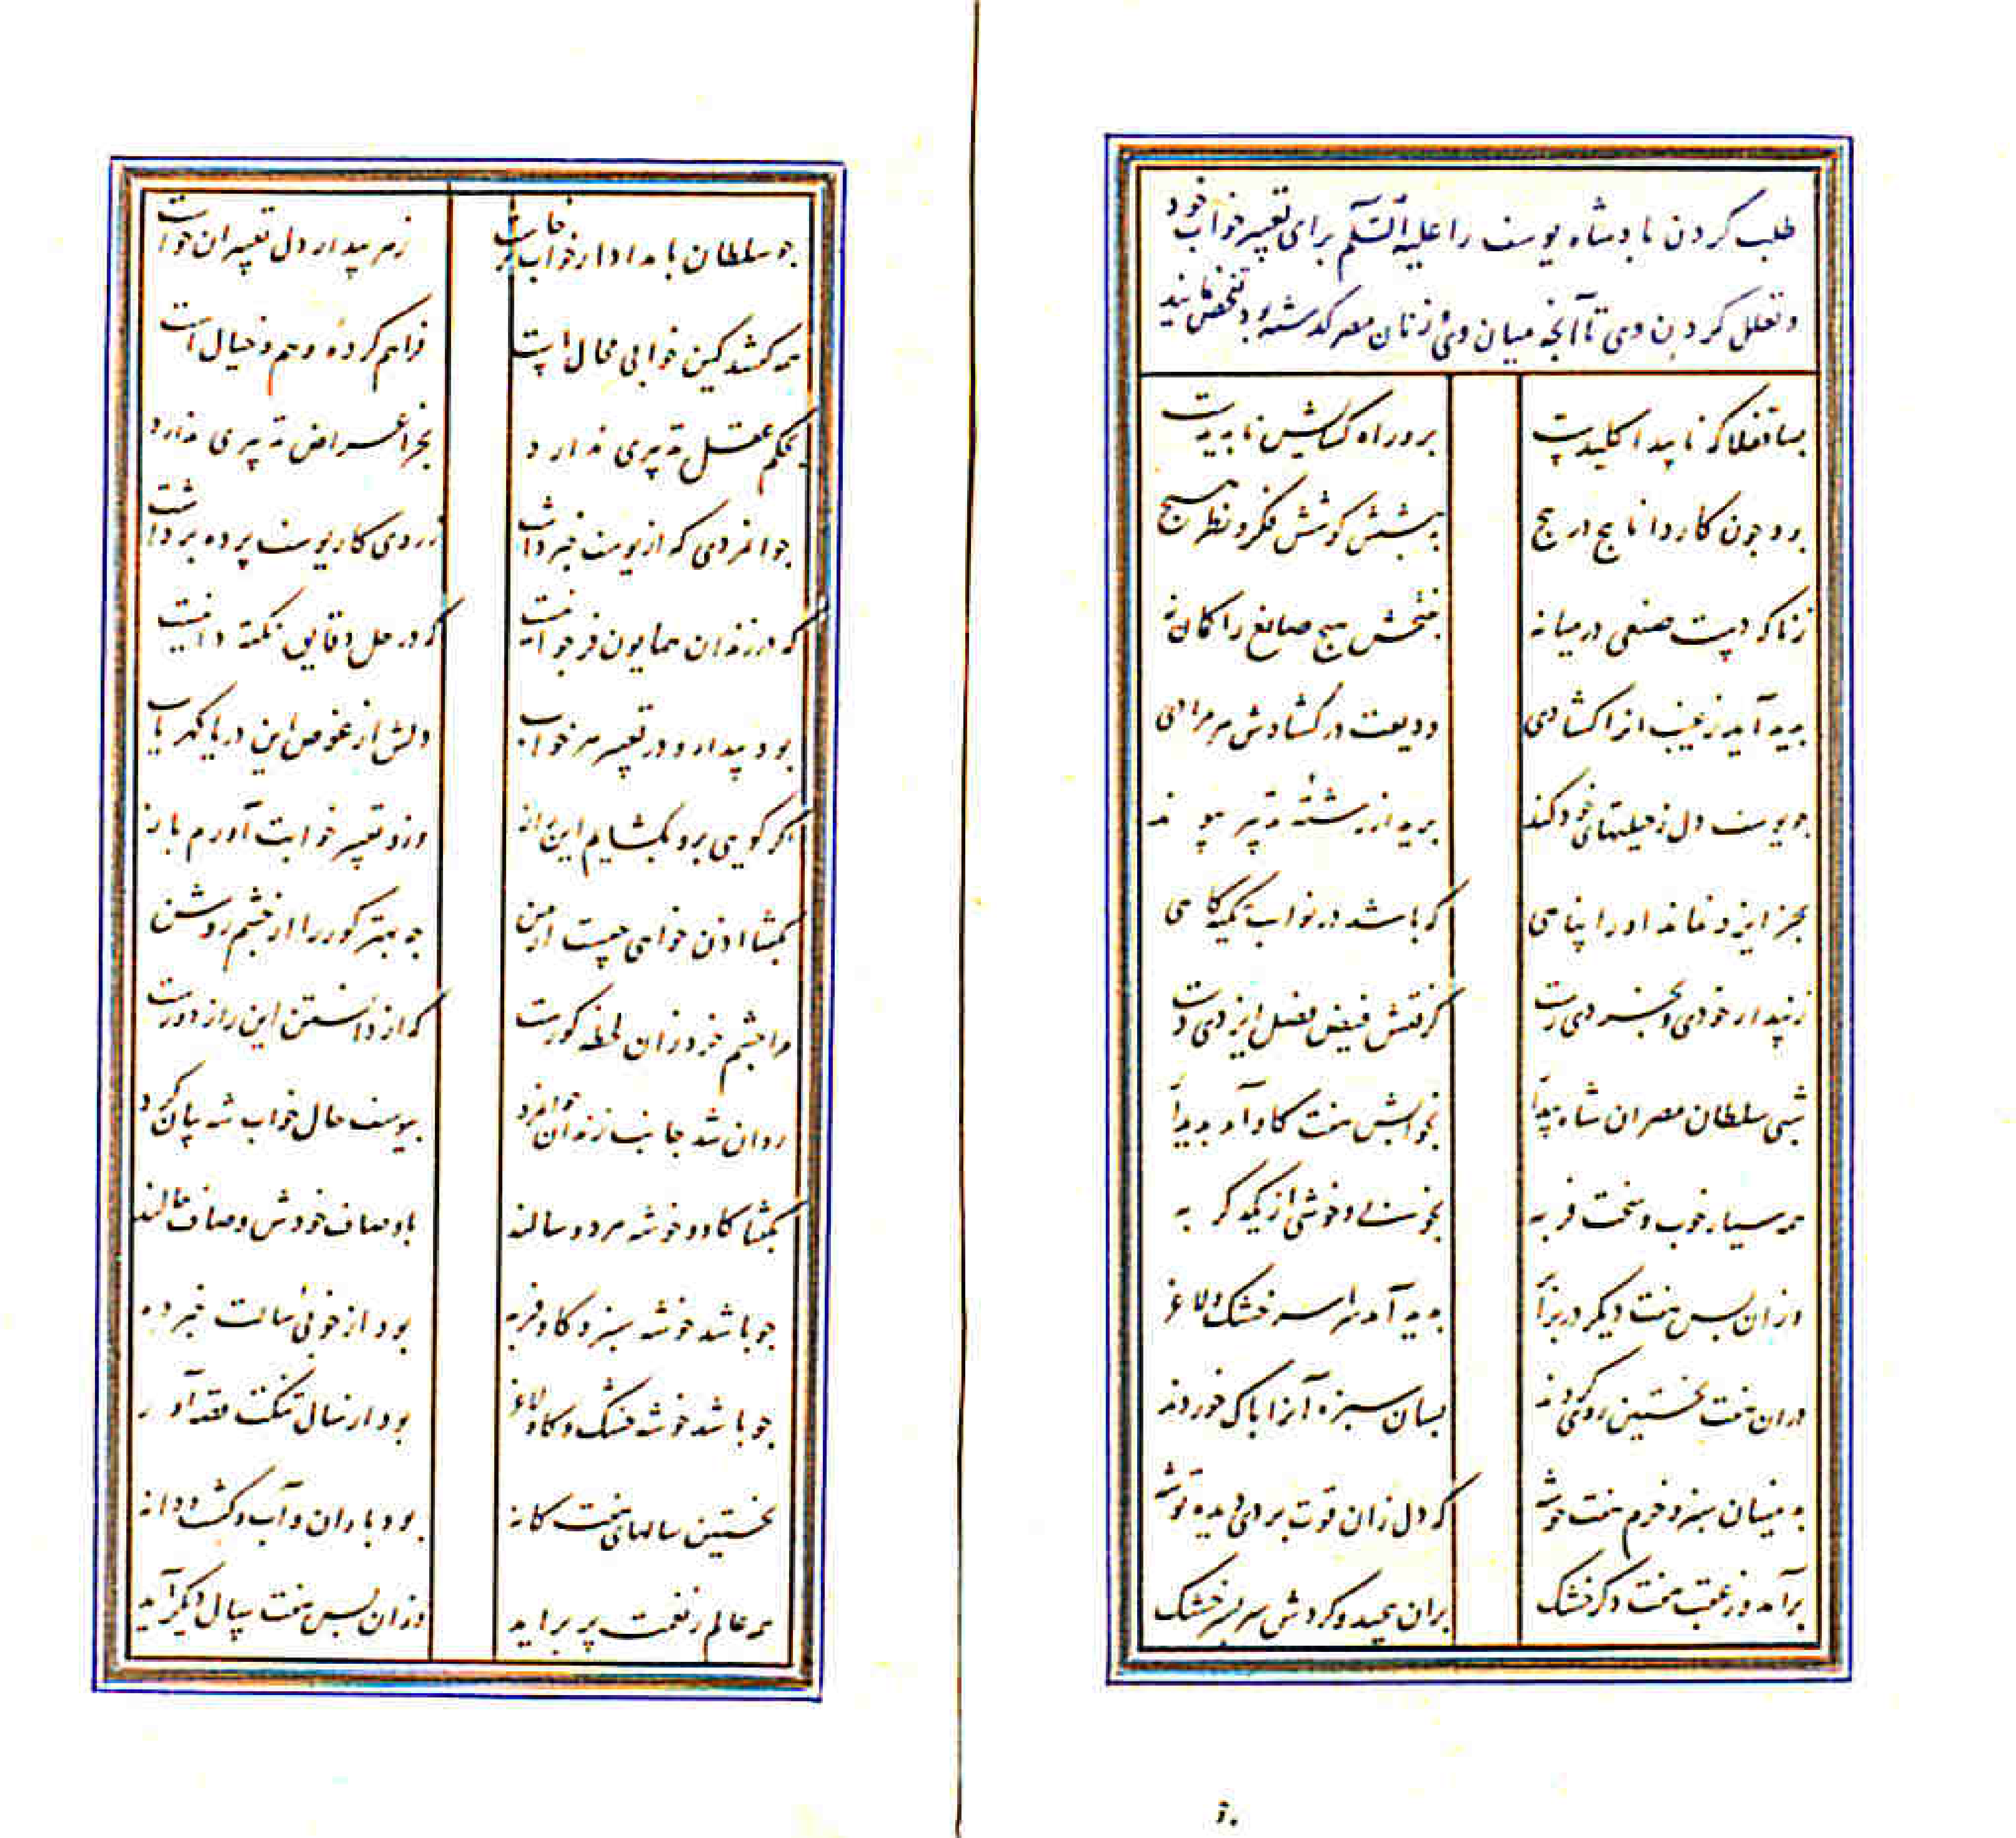 طلب کردن بادشاه یوسف را علیه السّلم برای تعبیر خواب خود
و تعلل کردن وی تا آنجه میان وی و زنان مصر کدشته بود تفحص نمایند
بسا قفلا که ناپیدا کلیدست بر و راه کشایش نابدیدست
بود جون کار دانا پیچ در پیچ به پیشش کوشش فکر و نظر هیچ
زناکه دست صنعی در میانه بفتحش هیچ صانع را کمان نه
بدید آید ز غیب انرا کشادی ودیعت در کشادش هر مرادی
جو یوسف دل ز حیلتهای خود کند برید از رشتهٔ تدبیر پیوند
بجز ایزد نماند او را پناهی که باشد در نوایب تکیه کاهی
ز پندار خودی و بخردی رست کرفتش فیض فضل ایزدی دست
شبی سلطان مصر ان شاه بیدار بخوابش هفت کاو آمد بدیدار
همه بسیار خوب و سخت فربه بخوبی و خوشی از یکدکر به
وزان بس هفت دیکر در برابر بدید آمد سراسر خشک و لاغر
دران هفت نخستین روی کردند بسان سبزه آنرا باک خوردند
بدینسان سبز و خرم هفت خوشه که دل زان قوت بردی دیده توشه
برآمد وز عقب هفت دکر خشک بران پیچید و کردش سر بسر خشک
جو سلطان بامداد از خواب برخاست ز هر بیدار دل تعبیر ان خواست
همه کفتند کین خوابی محال است فراهم کردهٔ وهم و خیال است
بحکم عقل تدبیری ندارد بجز اعراض تدبیری ندارد
جوانمردی که از یوسف خبر داشت ز روی کار یوسف پرده برداشت
که در زندان همایون فر جوانیست که در حل دقایق نکته دانیست
بود بیدار و در تعبیر هر خواب دلش از غوص این دریا کهریاب
اکر کویی برو بکشایم این راز وزو تعبیر خوابت آورم باز
بکفتا اذن خواهی چیست از من چه بهتر کور را از چشم روشن
مرا چشم خرد زان لحظه کورست که از دانستن این راز دورست
روان شد جانب زندان جوانمرد بیوسف حال خواب شه بیان کرد
بکفتا کاو و خوشه هر دو سالند باوصاف خودش وصاف حالند
جو باشد خوشه سبز و کاو فربه بود از خوبی سالت خبر ده
جو باشد خوشه خشک و کاو لاغر بود از سال تنکت قصه آور
نخستین سالهای هفت کانه بود باران و آب و کشت و دانه
همه عالم ز نعمت پر براید وزان بس هفت سال دیکر آید